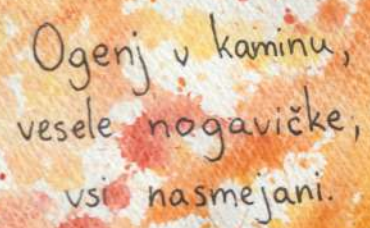 Ogenj v kaminu,
vesele nogavičke,
vsi nasmejani.